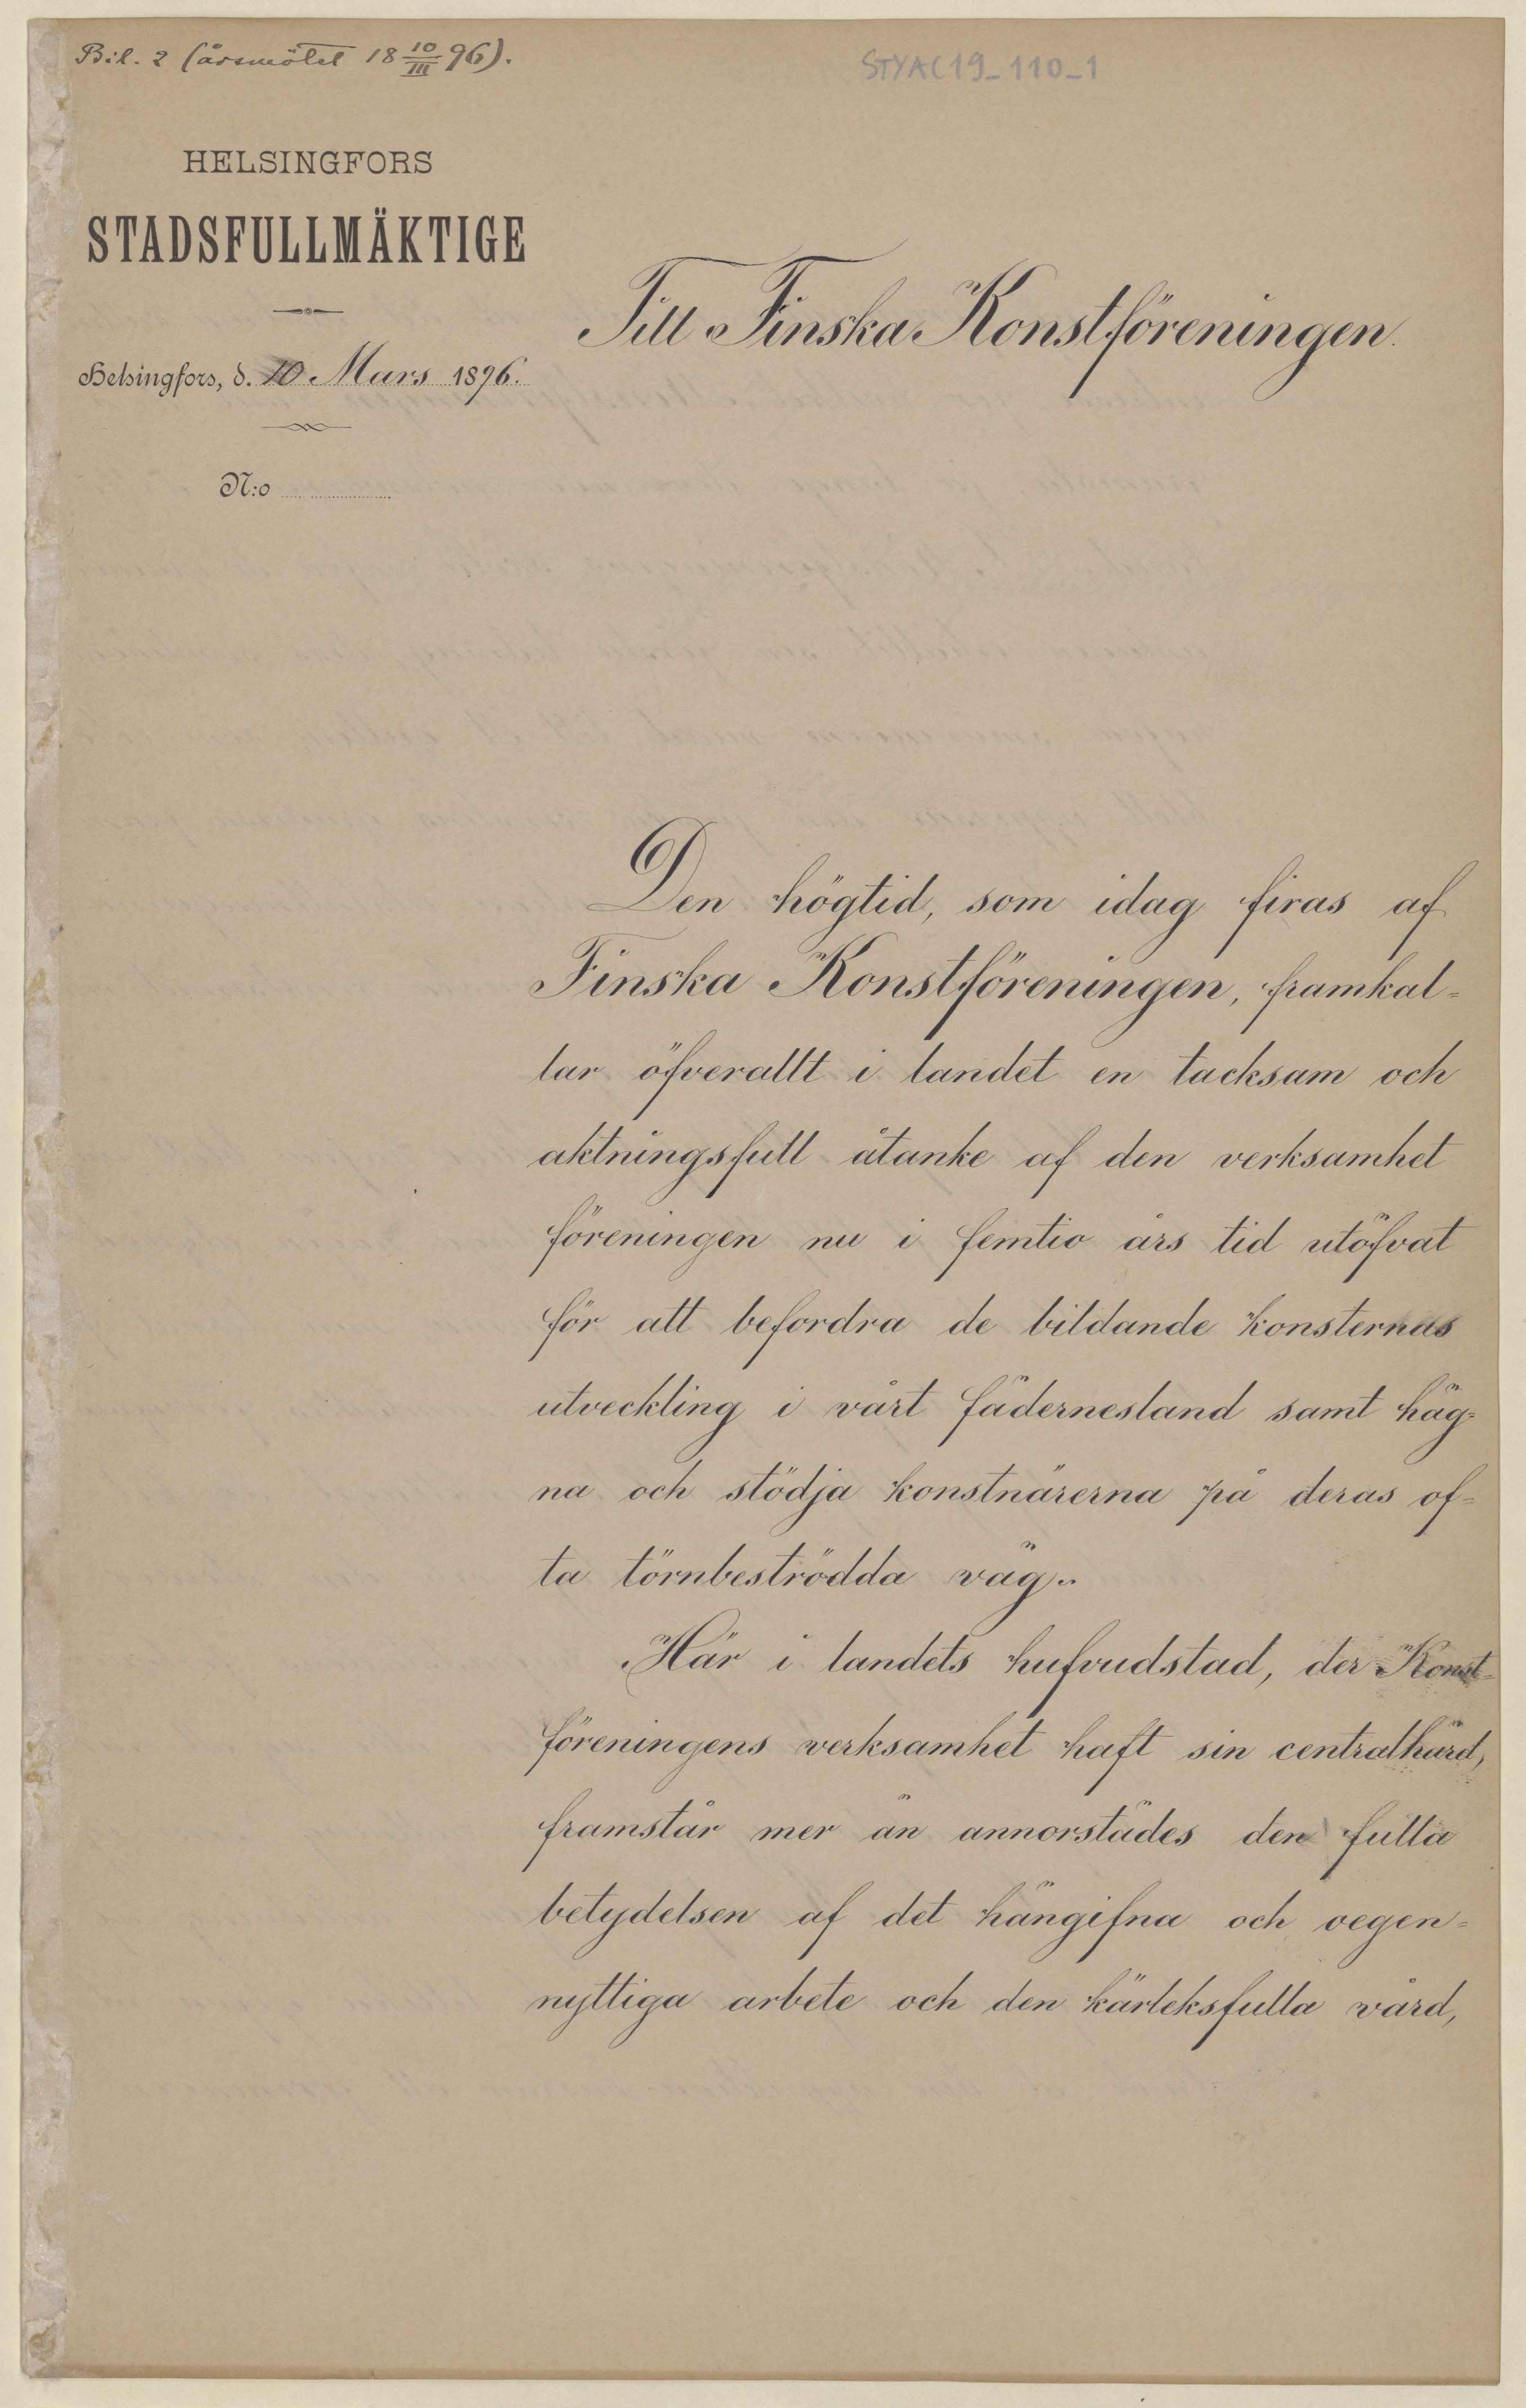 Bil. 2 (årsmötet 18 10/III 96).
STYAC19_110_1
HELSINGFORS
STADSFULLMÄKTIGE
Helsingfors, d. 10 Mars 1896.
N:o
Till Finska Konstföreningen.
Den högtid, som idag firas af
Finska Konstföreningen, framkal=
lar öfverallt i landet en tacksam och
aktningsfull åtanke af den verksamhet
föreningen nu i femtio års tid utöfvat
för att befordra de bildande konsternas
utveckling i vårt fädernesland samt häg=
na och stödja konstnärerna på deras of=
ta törnbeströdda väg..
Här i landets hufvudstad, der Konst=
föreningens verksamhet haft sin centralhärd,
framstår mer än annorstädes den fulla
betydelsen af det hängifna och oegen=
nyttiga arbete och den kärleksfulla vård,